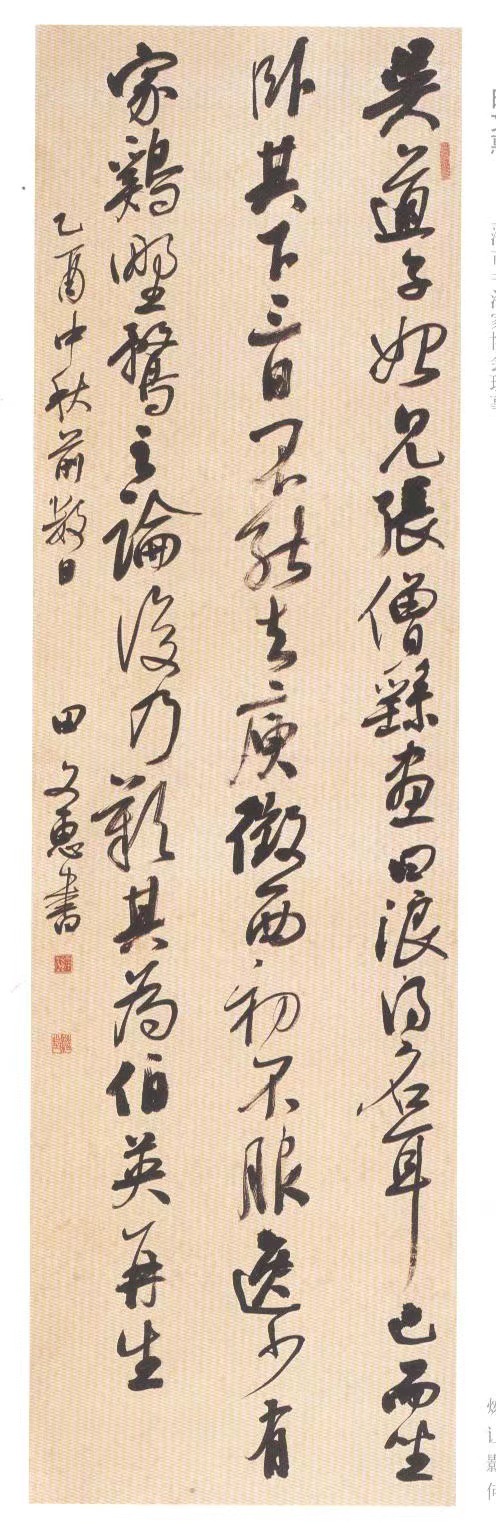 吳道子始見張僧繇畫曰浪得名耳已而坐
卧其下三日不能去庾徵西初不服逸少有
家鷄野鶩之論後乃歎其為伯英再生
乙酉中秋前數日 田文惠書